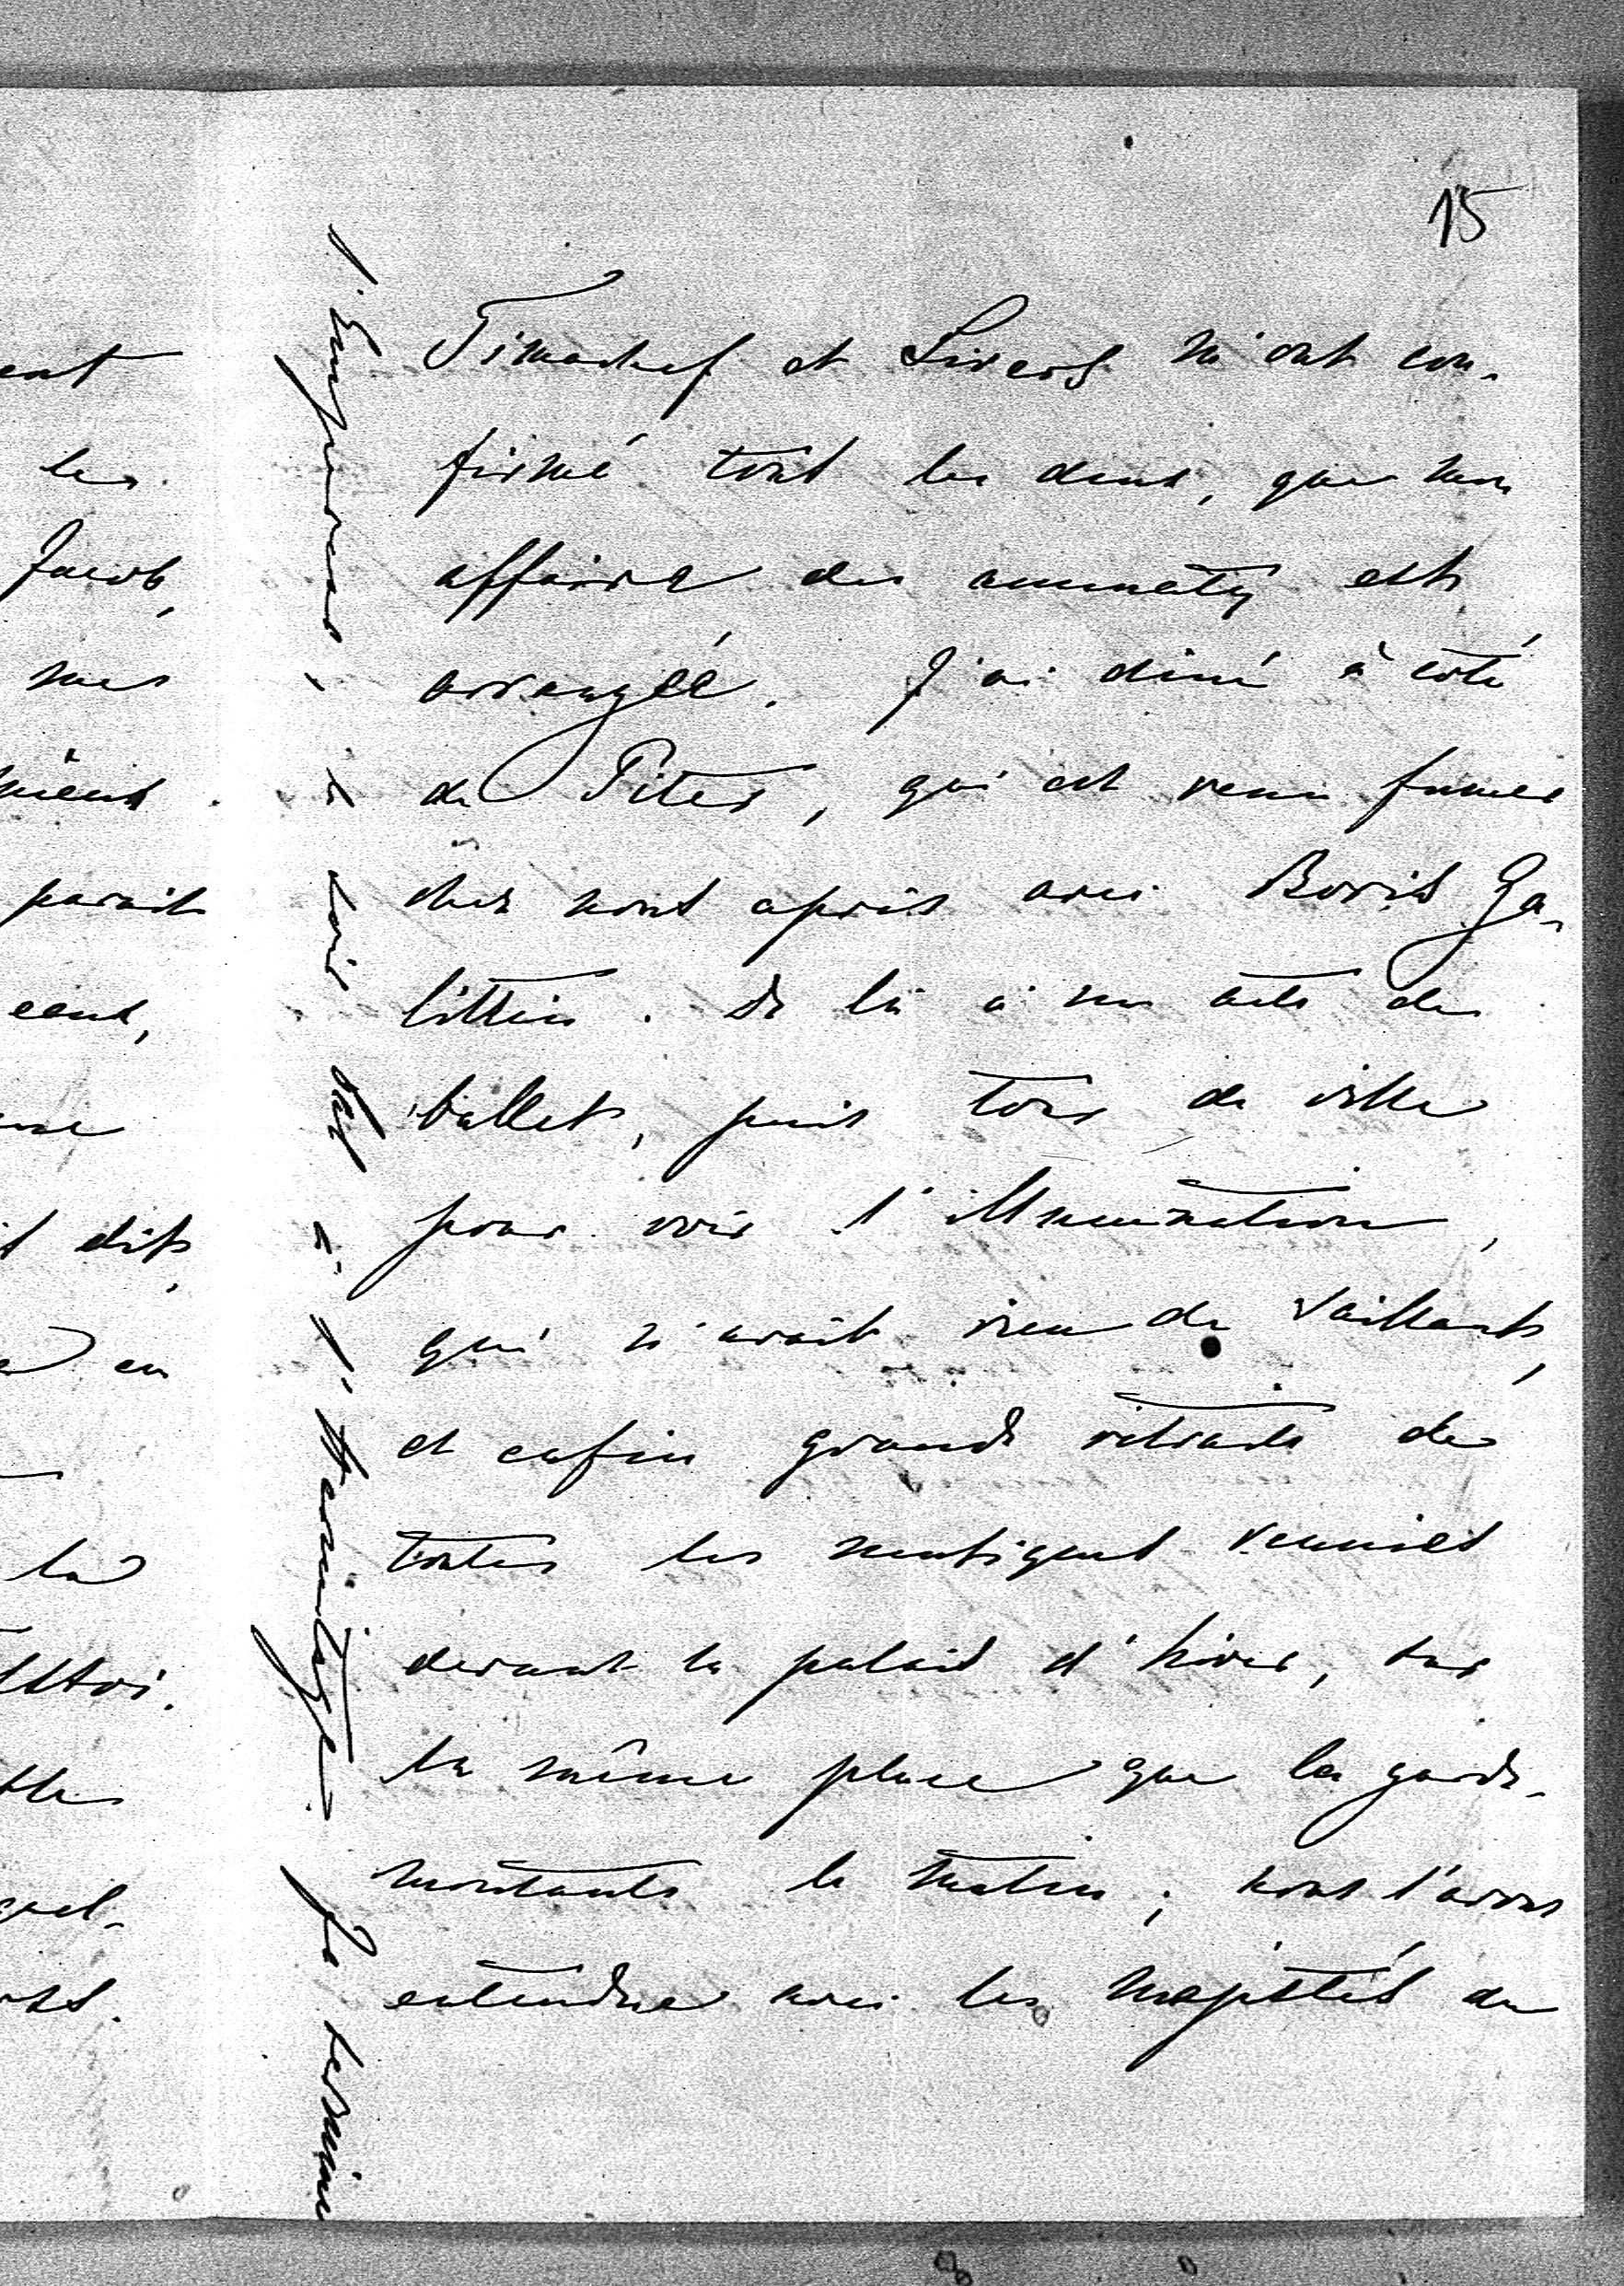 15
Timachef et Sivers m'ont con-
firmé tous les deux, que mon
affaire des ammaty est
arrangée. J'ai diné à coté
de Piter, qui est venu fumer
chez nous après avec Boris Ga-
littzin. De là à un acte de
ballet, puis tour de ville
pour voir l'illumination,
qui n'avait rien de vaillant,
et enfin grande retraite de
toutes les musiques reunies
devant le palais d'hiver, sur
la même place que la garde
montante le matin; nous l'avons
entendue avec les majestés de
l'Empereur - à l'hermitage. Je termine
ent
les
Jacob,
mes
parait
eux,
dit,
en
la